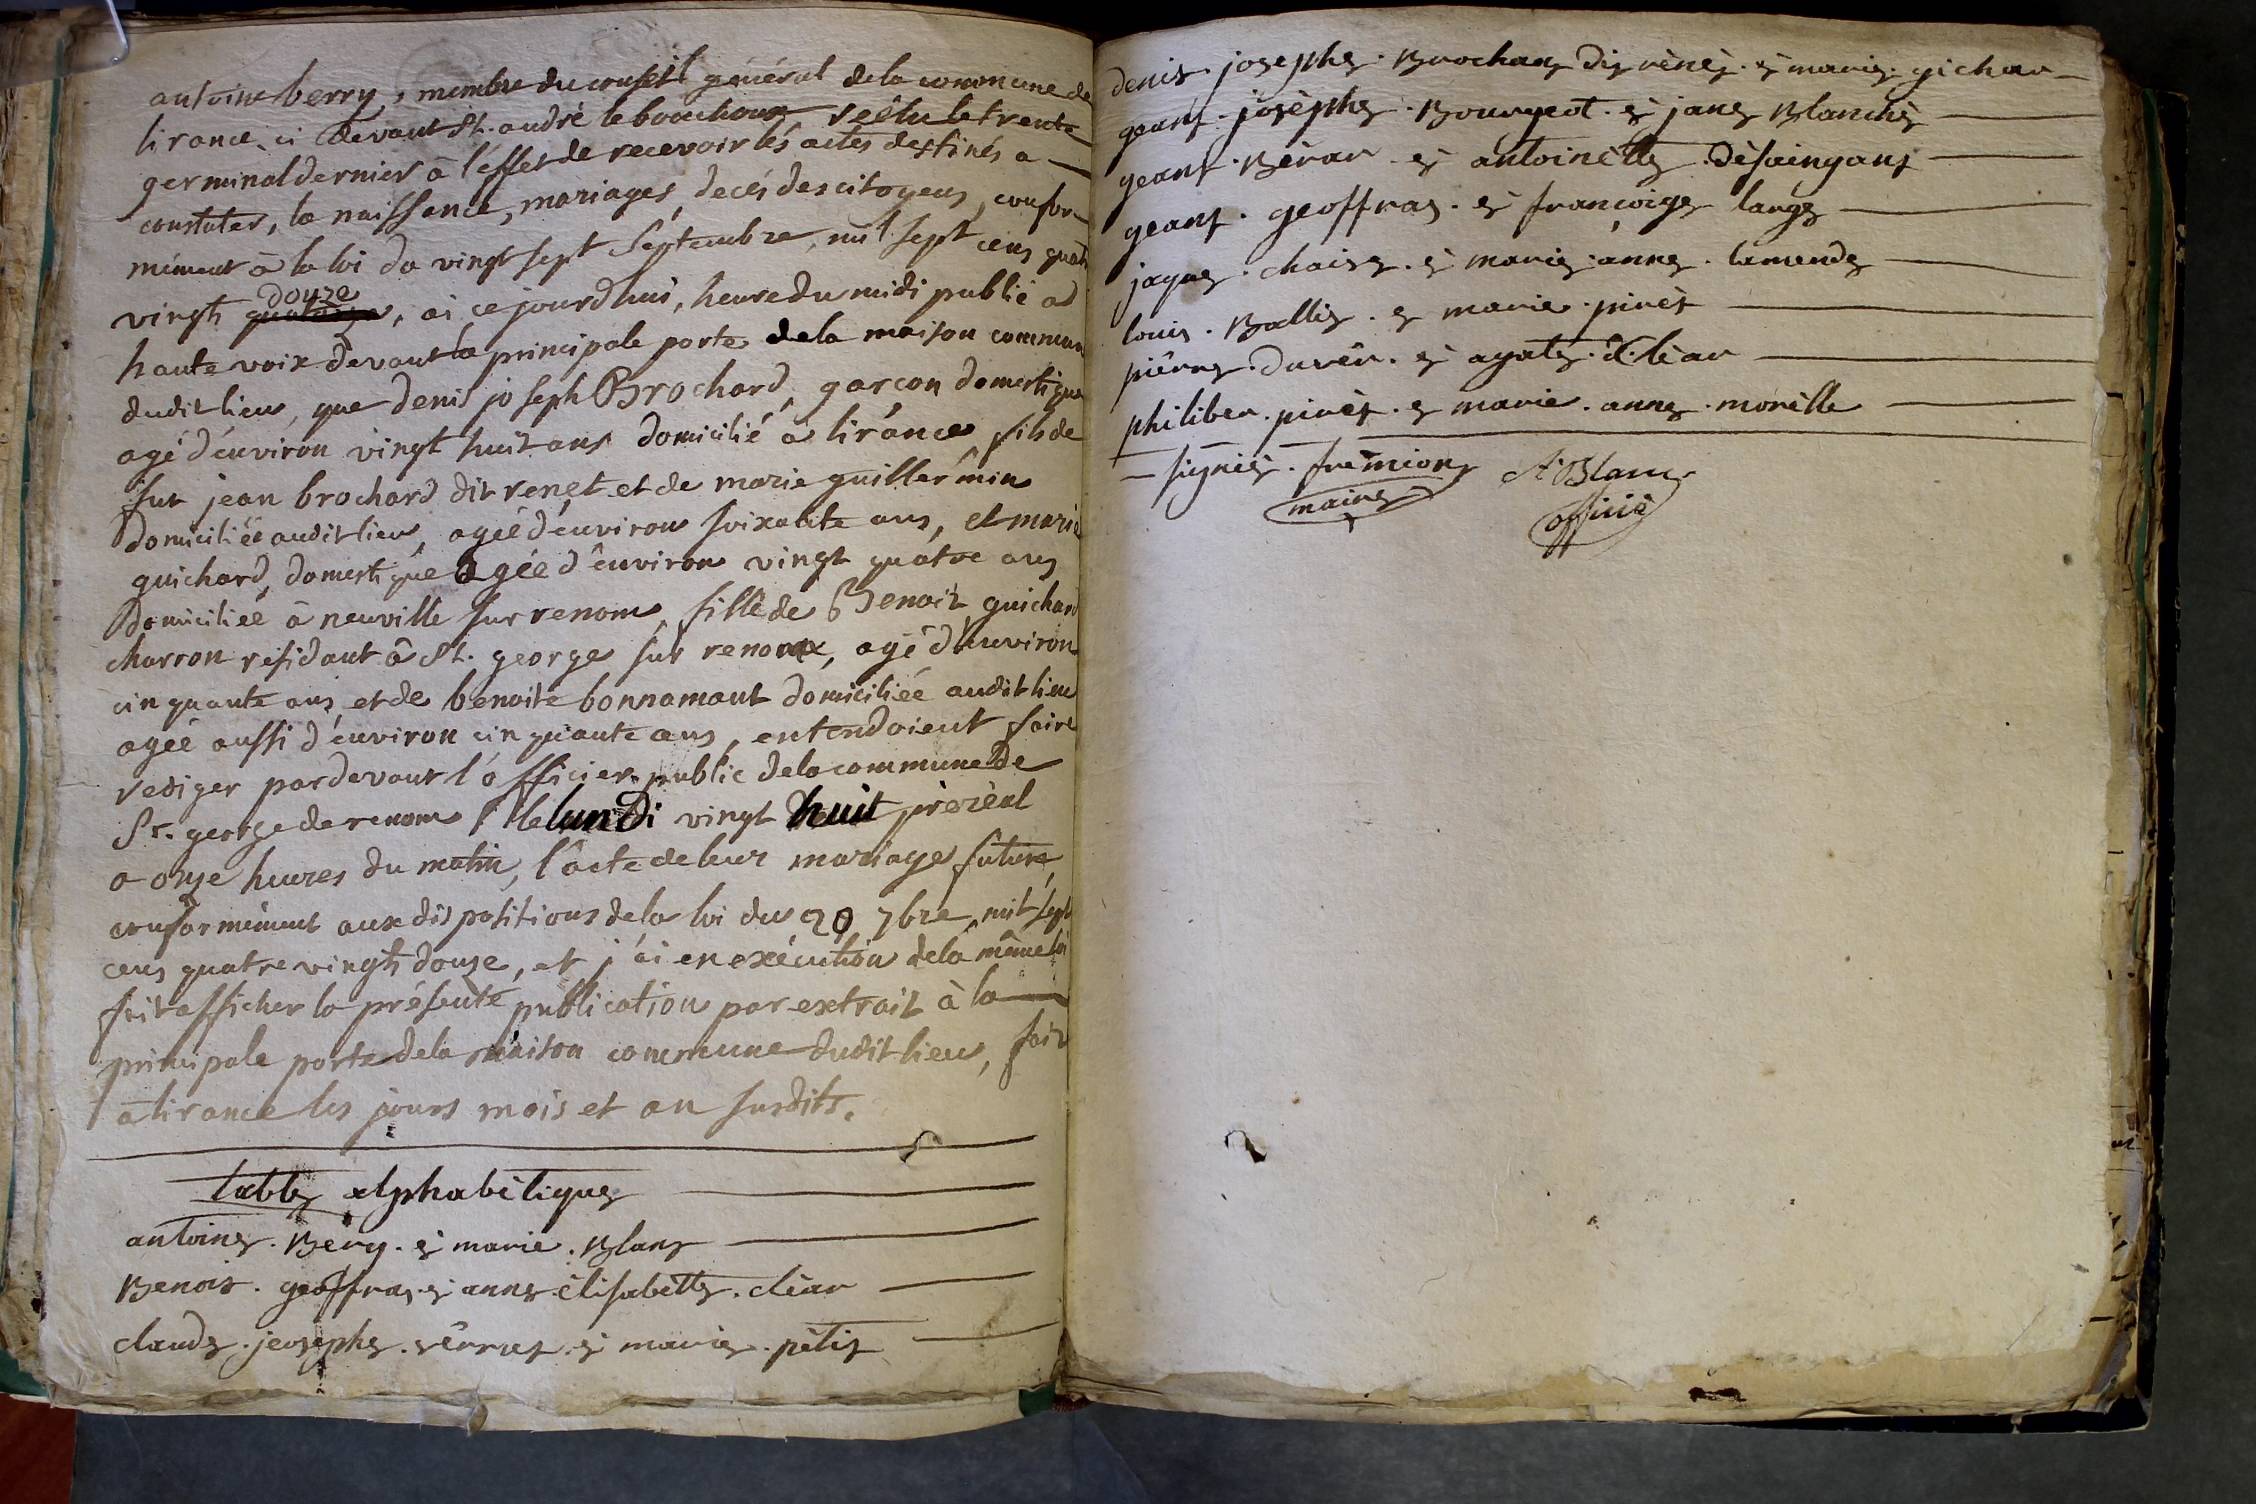 antoine berry, membre du conseil général dela commune de
lirance, ci devant St. andré le bouchoux reélu le trente
germinal dernier à l'effet de recevoir lés actes destinés a
constater, la naissance, mariages, decés des citoyens, confor-
mément à la loi du vingt sept Septembre, mil sept cens quatre
douze
vingt quatorze, ai ce jourd'hui, heure du midi publié ad
haute voix devant la principale porte dela maison commune
dudit lieu, que denis joseph Brochard, garçon domestique
agé d'environ vingt huit ans domicilié à lirance fils de
fut jean brochard dit renet et de marie guillermin
domiciliée audit lieu, agée d'environ soixante ans, et marie
guichard, domestique agée d'environ vingt quatre ans
domiciliée à neuville sur renom, fille de Benoit guichard
charron résidant à St. george sur renom, agé d'environ
cinquante ans, et de benoite bonnamant domiciliée audit lieu
agée aussi d'environ cinquante ans, entendoient faire
rediger pardevant l'officier public dela commune de
St. george de renom le lundi vingt huit prerial
a onze heures du matin, l'acte de leur mariage future,
conformément aux dispositions dela loi du 20 7bre, mil sept
cens quatre vingt douze, et j'ai en exécution dela même loi
fait afficher la présente publication par extrait à la
principale porte dela maison commune dudit lieu, fait
a lirance les jours mois et an susdits.
table alphabétique
antoine. Bery. et marie. Blanc
Benois. geoffray. et anne élisabette. cléar
claude. joseph. et marie. petit
denis. josephe. Brochar dit rénet. et marie. gichar
geant. josephe. Bourgeot. et jane Blanche
geant. Bérar. et antoinette
geant. geoffray. et francoige large
jaque. chaise. et marie. anne. lamende
louis. Ballis. et marie. piret
pierre. et agate. cléar
philiber. piret. et marie. anne. morelle
signiés. fremion A. Blanc
maire officié